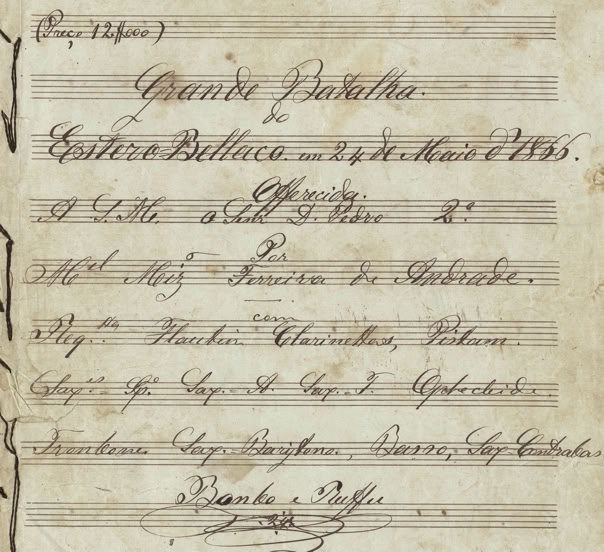 (Preço 12$000)
Grande Batalha.
do
Estero-Bellaco. em 24 de Maio d' 1866.
Offerecida.
A S. M. o Senr. D. Pedro 2º.
Por
Mel Miz Ferreira de Andrade.
com
Flautin Clarinettas, Pistam.
Sax. A. Sax. T. Opheclide.
Trombone. Sax. Barÿtono, Basso, Sax-Contrabas
Bombo e Ruffu